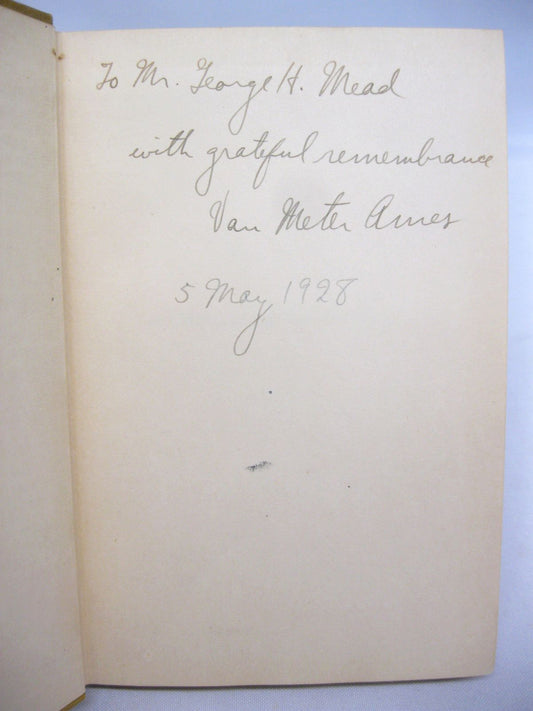 To Mr. George H. Mead
with grateful remembrance
Van Meter Ames
5 May 1928